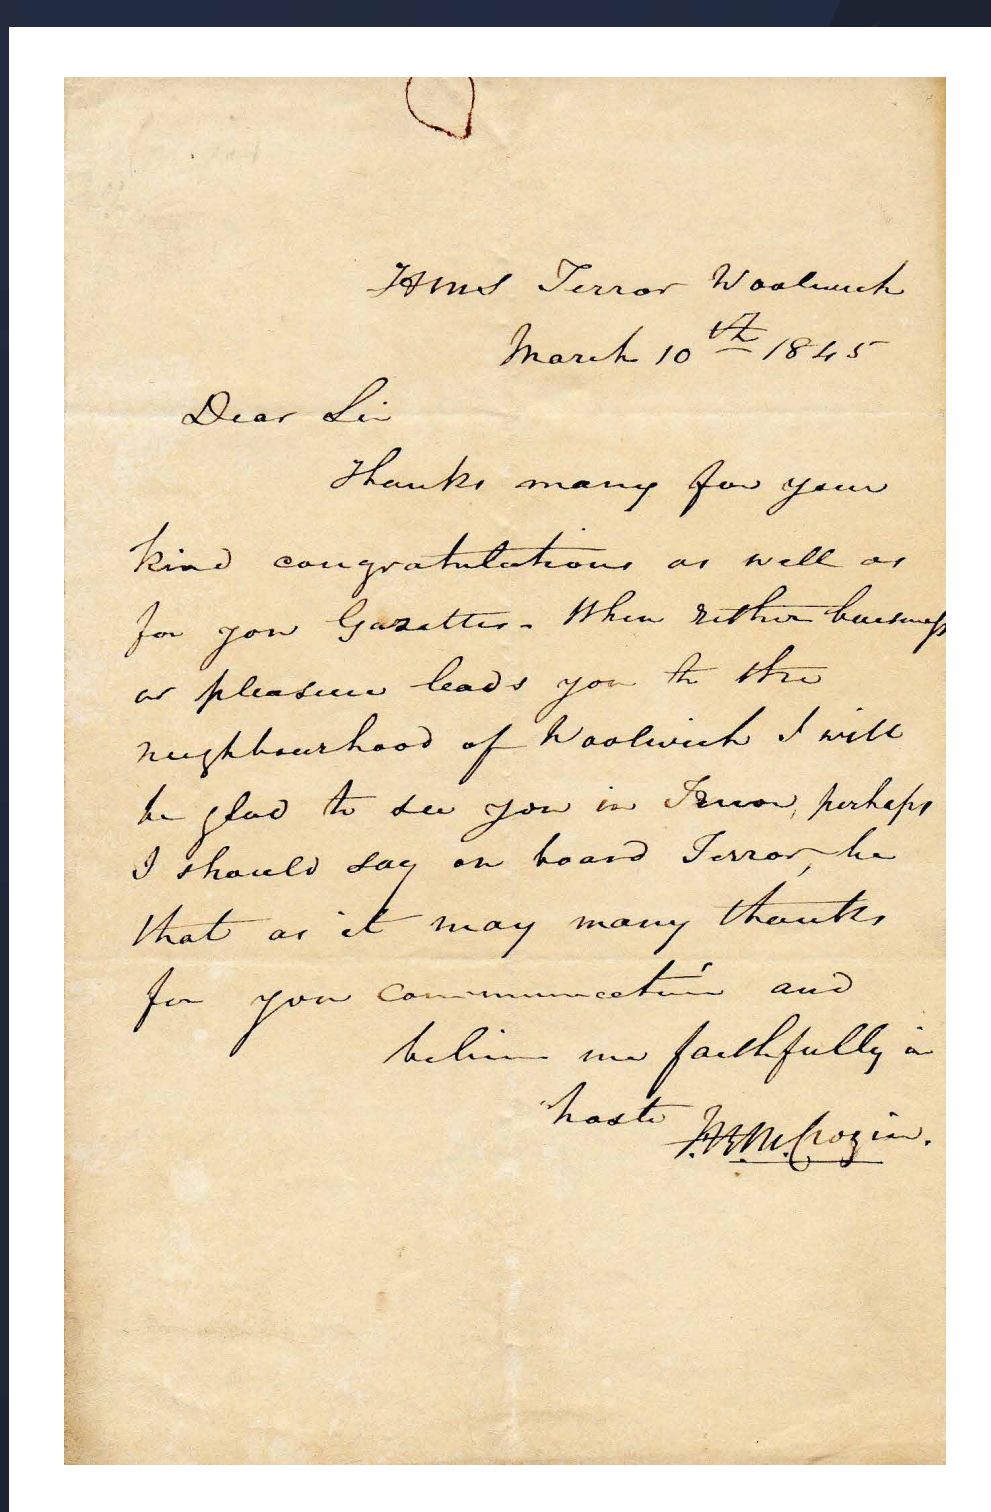 HMS Terror Woolwich
March 10th 1845
Dear Sir
Thanks many for your
kind congratulations as well as
for your Gazettes - When either buisness
or pleasure leads you to the
neighbourhood of Woolwich I will
be glad to see you in Terror, perhaps
I should say on board Terror, be
that as it may many thanks
for your communication and
believe me faithfully in
haste F.R.M. Crozier.